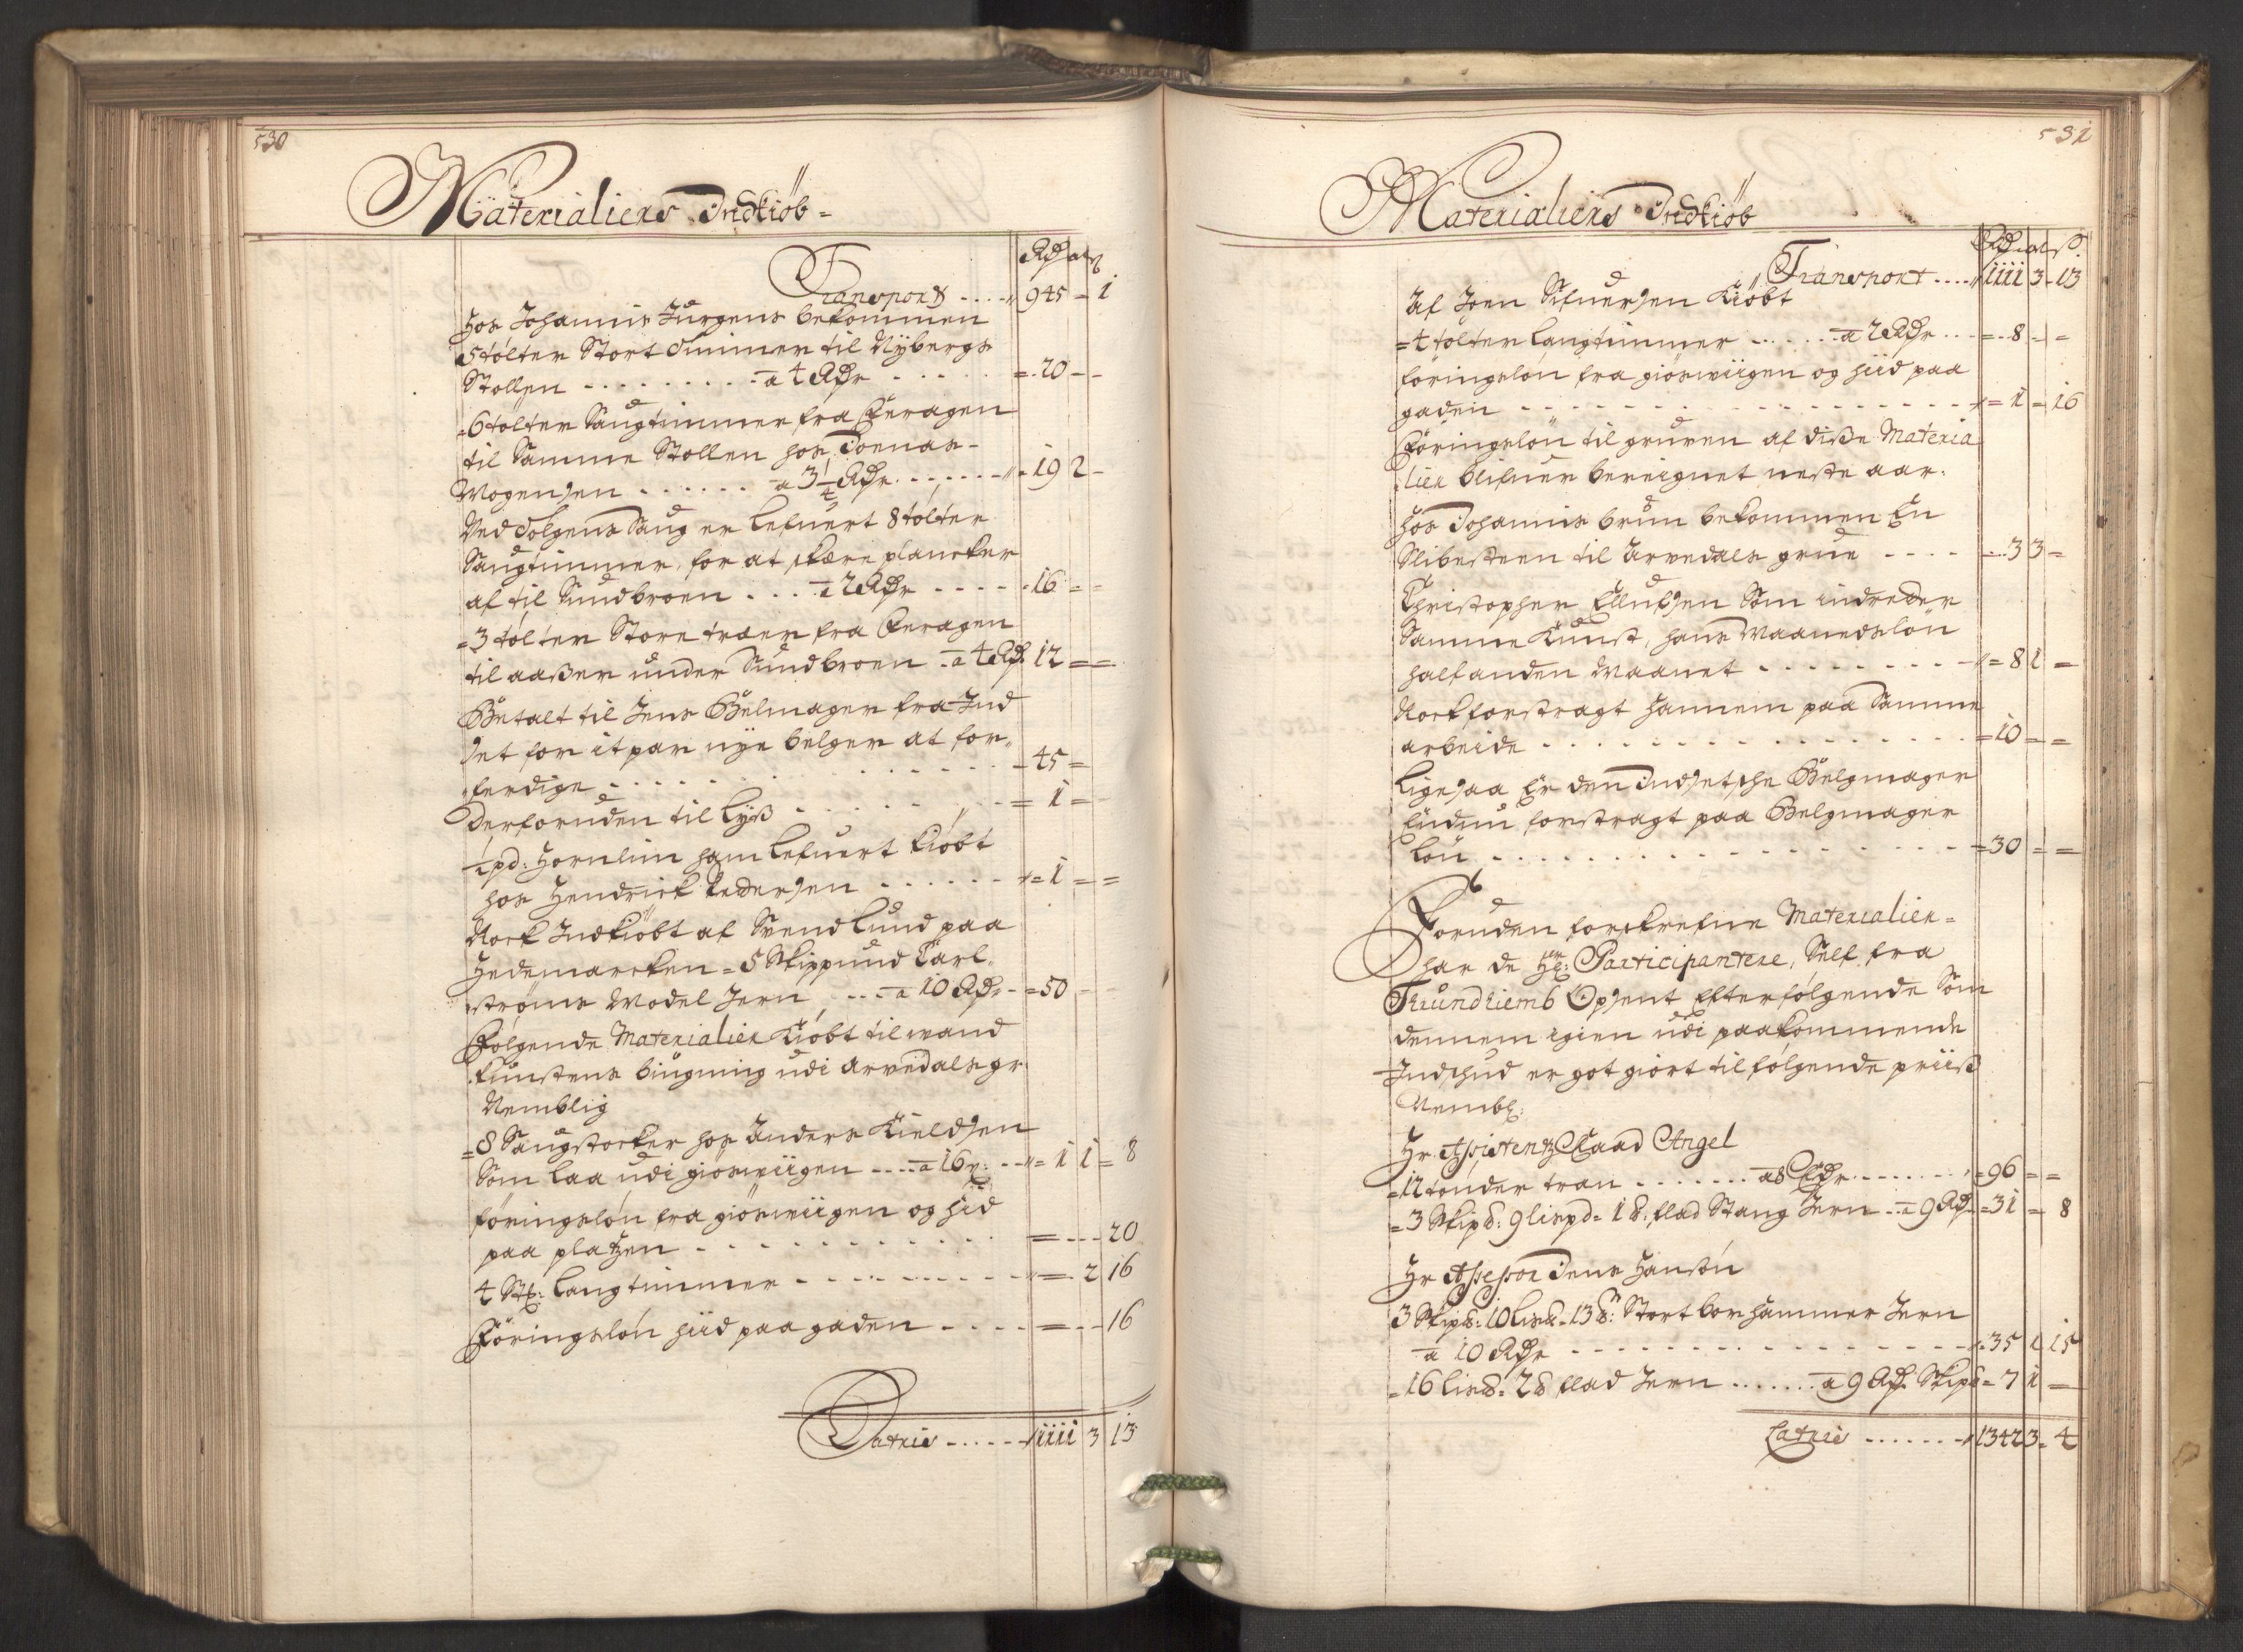 530
Materialiers Indkiöb =
Rdr ort ß
Transport - - - - 945 = 1
Hos Johannis Jürgens bekommen
5 tølter Stort Timmer til Nybergs
Stollen - - - - - - - a 4 Rdr - - - - = 20 - -
= 6 tølter Saugtimmer fra Feragen
til Samme Stollen hos Joenas -
Mogensen - - - - - a 3 1/4 Rdr - - - - = 19 2 -
Ved Tolgens Saug er lefuert 8 tølter
Saugtimmer, for at skære plancker
af til Sundbroen - - - a 2 Rdr - - - - = 16 = -
= 3 tølter Store træer fra Feragen
til aaßer under Sundbroen - a 4 Rdr 12 = =
Betalt til Jens Belmager fra Ind
set for it par nye belger at for=
ferdige - - - - - - - - - 45 =
Derforuden til lyß - - - - - - = 1 = -
pd: Hornlim ham lefuert kiøbt
hos Hendrick Pedersen - - - - - = 1 = =
Nock Indkiöbt af Svend Lund paa
Hedemarcken = 5 Skippund Carl=
strøms Model Jern - - - a 10 Rdr - = 50 - -
Følgende Materialier kiøbt til wand
kunstens biugning udi Arvedals gr:
Nemblig
= 8 Saugstocker hos Anders Kieldsen
Som laa udi giöswiigen - - - a 16 ß: - - = 1 1 = 8
föringsløn fra giöswiigen og hid
paa platzen - - - - - - - - - = - - - 20
4 Stk: Langtimmer - - - - - - - - = - 2 16
Föringsløn hiid paa gaden - - - - = - - 16
Latris - - - - - 1111 3 13
531
Materialiers Indkiöb
Rdr ort ß
Transport - - - - 1111 3 - 13
Af Joen Sifuersen Kiöbt
= 4 tølter langtimmer - - - - - - a 2 Rdr - - - = - 8 - =
föringsløn fra giöswiigen og hiid paa
gaden - - - - - - - - - - - - - = 1 = 16
Föringsløn til gruven af diße Materia
lier blifuer bereignet neste aar.
Hos Johannis brun bekommen En
Slibesteen til Arvedals grue - - - - - - - 3 3 =
Christopher Ellufsen Som indreder
Samme Kunst, hans Maanedsløn
halfanden Maanet - - - - - - - - = 8 1 =
Nock forstragt Hannem paa Samme
arbeide - - - - - - - - - - - = 10 = =
Ligesaa Er den Indsetsche Belgmager
Endnu forstragt paa Belgmager
Løn - - - - - - - - - - - - - = 30 = =
Foruden forskrefne Materialier =
har de Hr: Participantere, Self fra
Trundhiemb Opsent Efterfølgende Som
dennem igien udi paakommende
Indschud er got giort til følgende priiß
Nembl:
Hr. Assistentz Claad Angel
= 12 tønder tran - - - - - - a 8 Rdr - - - - - - = 96 = =
= 3 Skip℔: 9 lispd = 1 ℔: flad Stang Jern - a 9 Rdr = 31 = 8
Hr Assessor Jens Hansøn
3 Skip℔: 10 Lis℔ - 13 ℔: Stort bor Hammer Jern
a 10 Rdr - - - - - - - - - - - - = 35 1 15
= 16 Lis℔ = 2 ℔ flad Jern - - - - - - a 9 Rdr Skip℔ = 7 1 =
Latris - - - - - - 1342 3 = 4